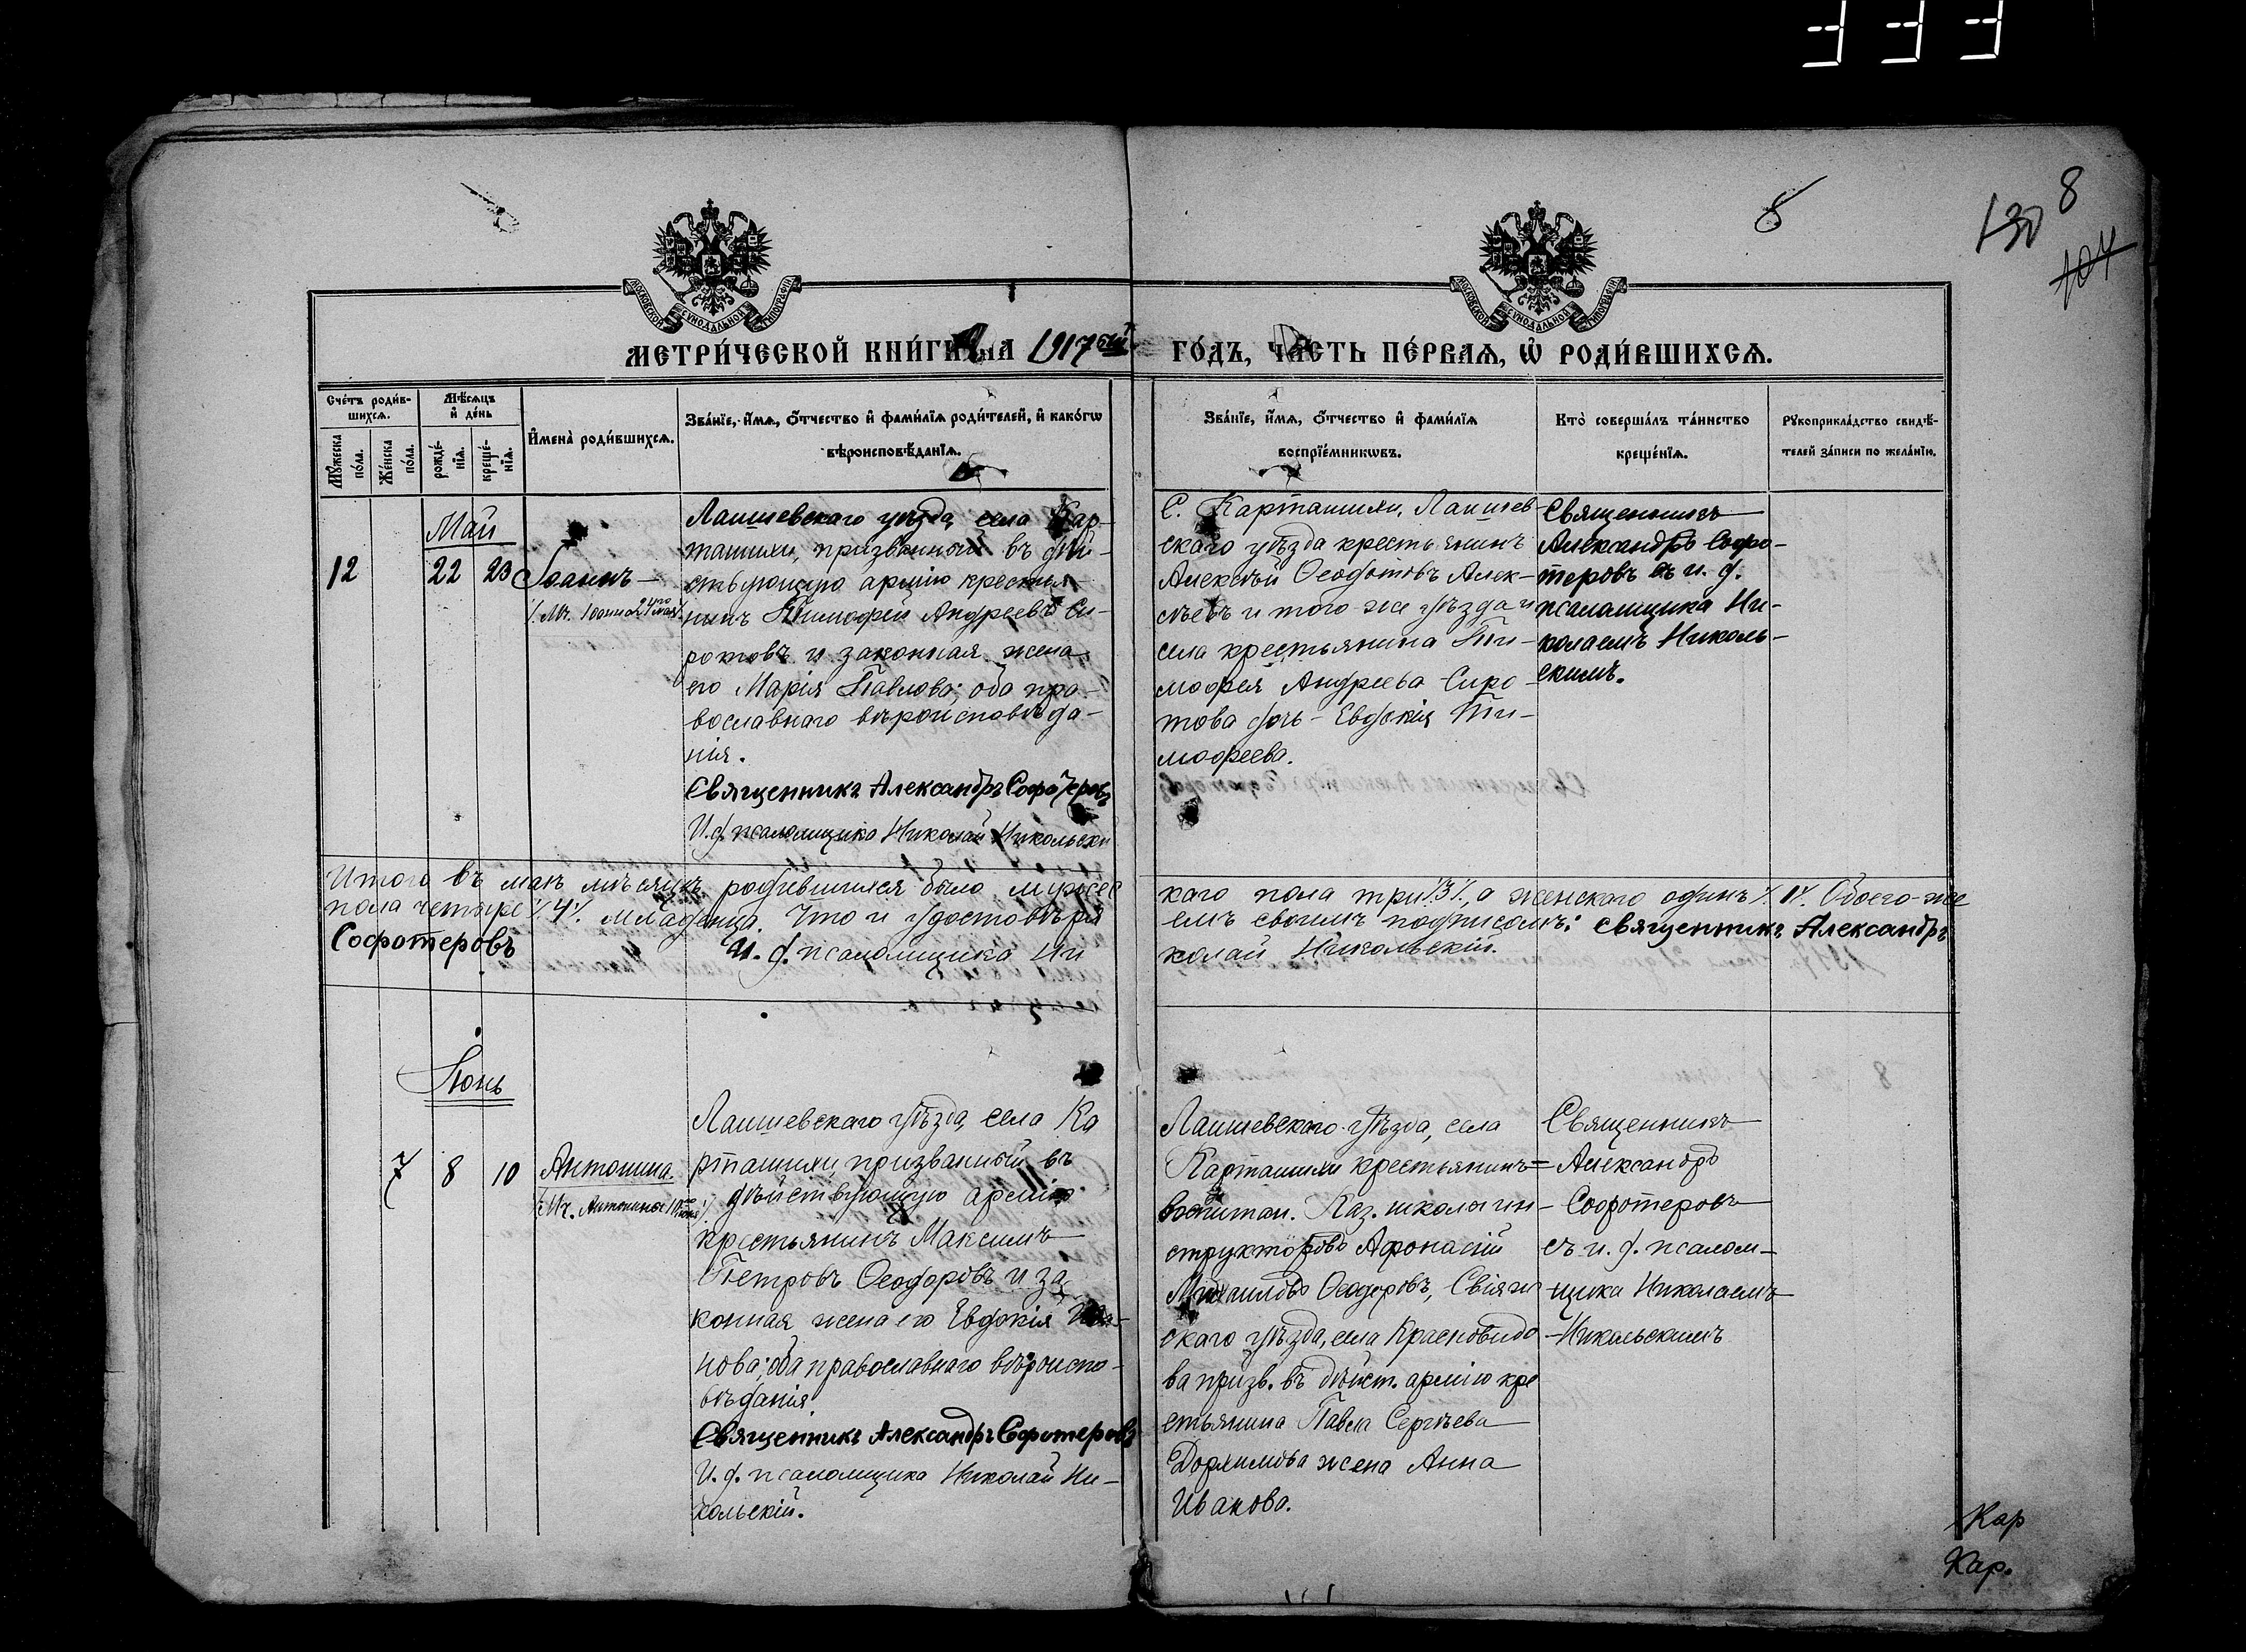 333
8
130
8
104
МОСКОВСКОЙ СѴНОДАЛЬНОЙ ТИПОГРАФІИ
МОСКОВСКОЙ СѴНОДАЛЬНОЙ ТИПОГРАФІИ
МЕТРИ́ЧЕСКОЙ КНИ́ГИ НА 1917ый ГО́ДЪ, ЧА́СТЬ ПЕ́РВАѦ, Ѡ҆ РОДИ́ВШИХСѦ.
Сче́тъ роди́в-
шихсѧ.
Мѣ́сѧцъ
и҆ де́нь
Мꙋ́жеска
по́ла.
Же́нска
по́ла.
рожде́-
нїѧ.
креще́-
нїѧ.
И҆мена̀ роди́вшихсѧ.
Зва́нїе, и҆́мѧ, ѻ҆́тчество и҆ фами́лїѧ роди́телей, и҆ како́гѡ
вѣроисповѣ́данїѧ.
Зва́нїе, и҆́мѧ, ѻ҆́тчество и҆ фами́лїѧ
воспрїе́мникѡвъ.
Кто̀ соверша́лъ та́инство
креще́нїѧ.
Рꙋкоприкла́дство свидѣ́-
телей за́писи по жела́нїю.
Май
12
22
23
Іоаннъ
/. Мч. Іоанна 24го мая ./
Лаишевскаго уѣзда, села Кар-
ташихи, призванный въ дѣй-
ствующую армію крестья-
нинъ Тимофей Андреевъ Си-
ротовъ и законная жена
его Марія Павлова; оба пра-
вославнаго вѣроисповѣда-
нія.
Священникъ Александръ Софотеровъ
И. д. псаломщика Николай Никольскій
С. Карташихи, Лаишев-
скаго уѣзда крестьянинъ
Алексѣй Ѳеодотовъ Алек-
сѣевъ и того-же уѣзда и
села крестьянина Ти-
моѳея Андреева Сиро-
това дочь - Евдокія Ти-
моѳеева.
Священникъ
Александръ Софо-
теровъ съ и. д.
псаломщика Ни-
колаемъ Николь-
скимъ.
Итого въ маѣ мѣсяцѣ родившихся было мужес
каго пола три /.3/., а женскаго одинъ /.1/. Обоего-же
пола четыре /.4/. младенца. Что и удостовѣря
емъ своимъ подписомъ: Священникъ Александръ
Софотеровъ
И. д. псаломщика Ни
колай Никольскій.
Іюнь
7
8
10
Антонина.
/. Мч. Антонины 10го іюня ./
Лаишевскаго уѣзда, села Ка
рташихи, призванный въ
дѣйствующую армію
крестьянинъ Максимъ
Петровъ Ѳеодоровъ и за
конная жена его Евдокія Ива-
нова; оба православнаго вѣроиспо-
вѣданія.
Священникъ Александръ Софотеровъ
И. д. псаломщика Николай Ни-
кольскій.
Лаишевскаго уѣзда, села
Карташихи крестьянинъ=
воспитан. Каз. школы ин-
структоровъ Афонасій
Михаиловъ Ѳеодоровъ, Свіяж
скаго уѣзда, села Красновидо
ва призв. въ дѣйст. армію кре
стьянина Павла Сергѣева
жена Анна
Иванова.
Священникъ
Александръ
Софотеровъ
съ и. д. псалом-
щика Николаемъ
Никольскимъ
Кар
Кар.